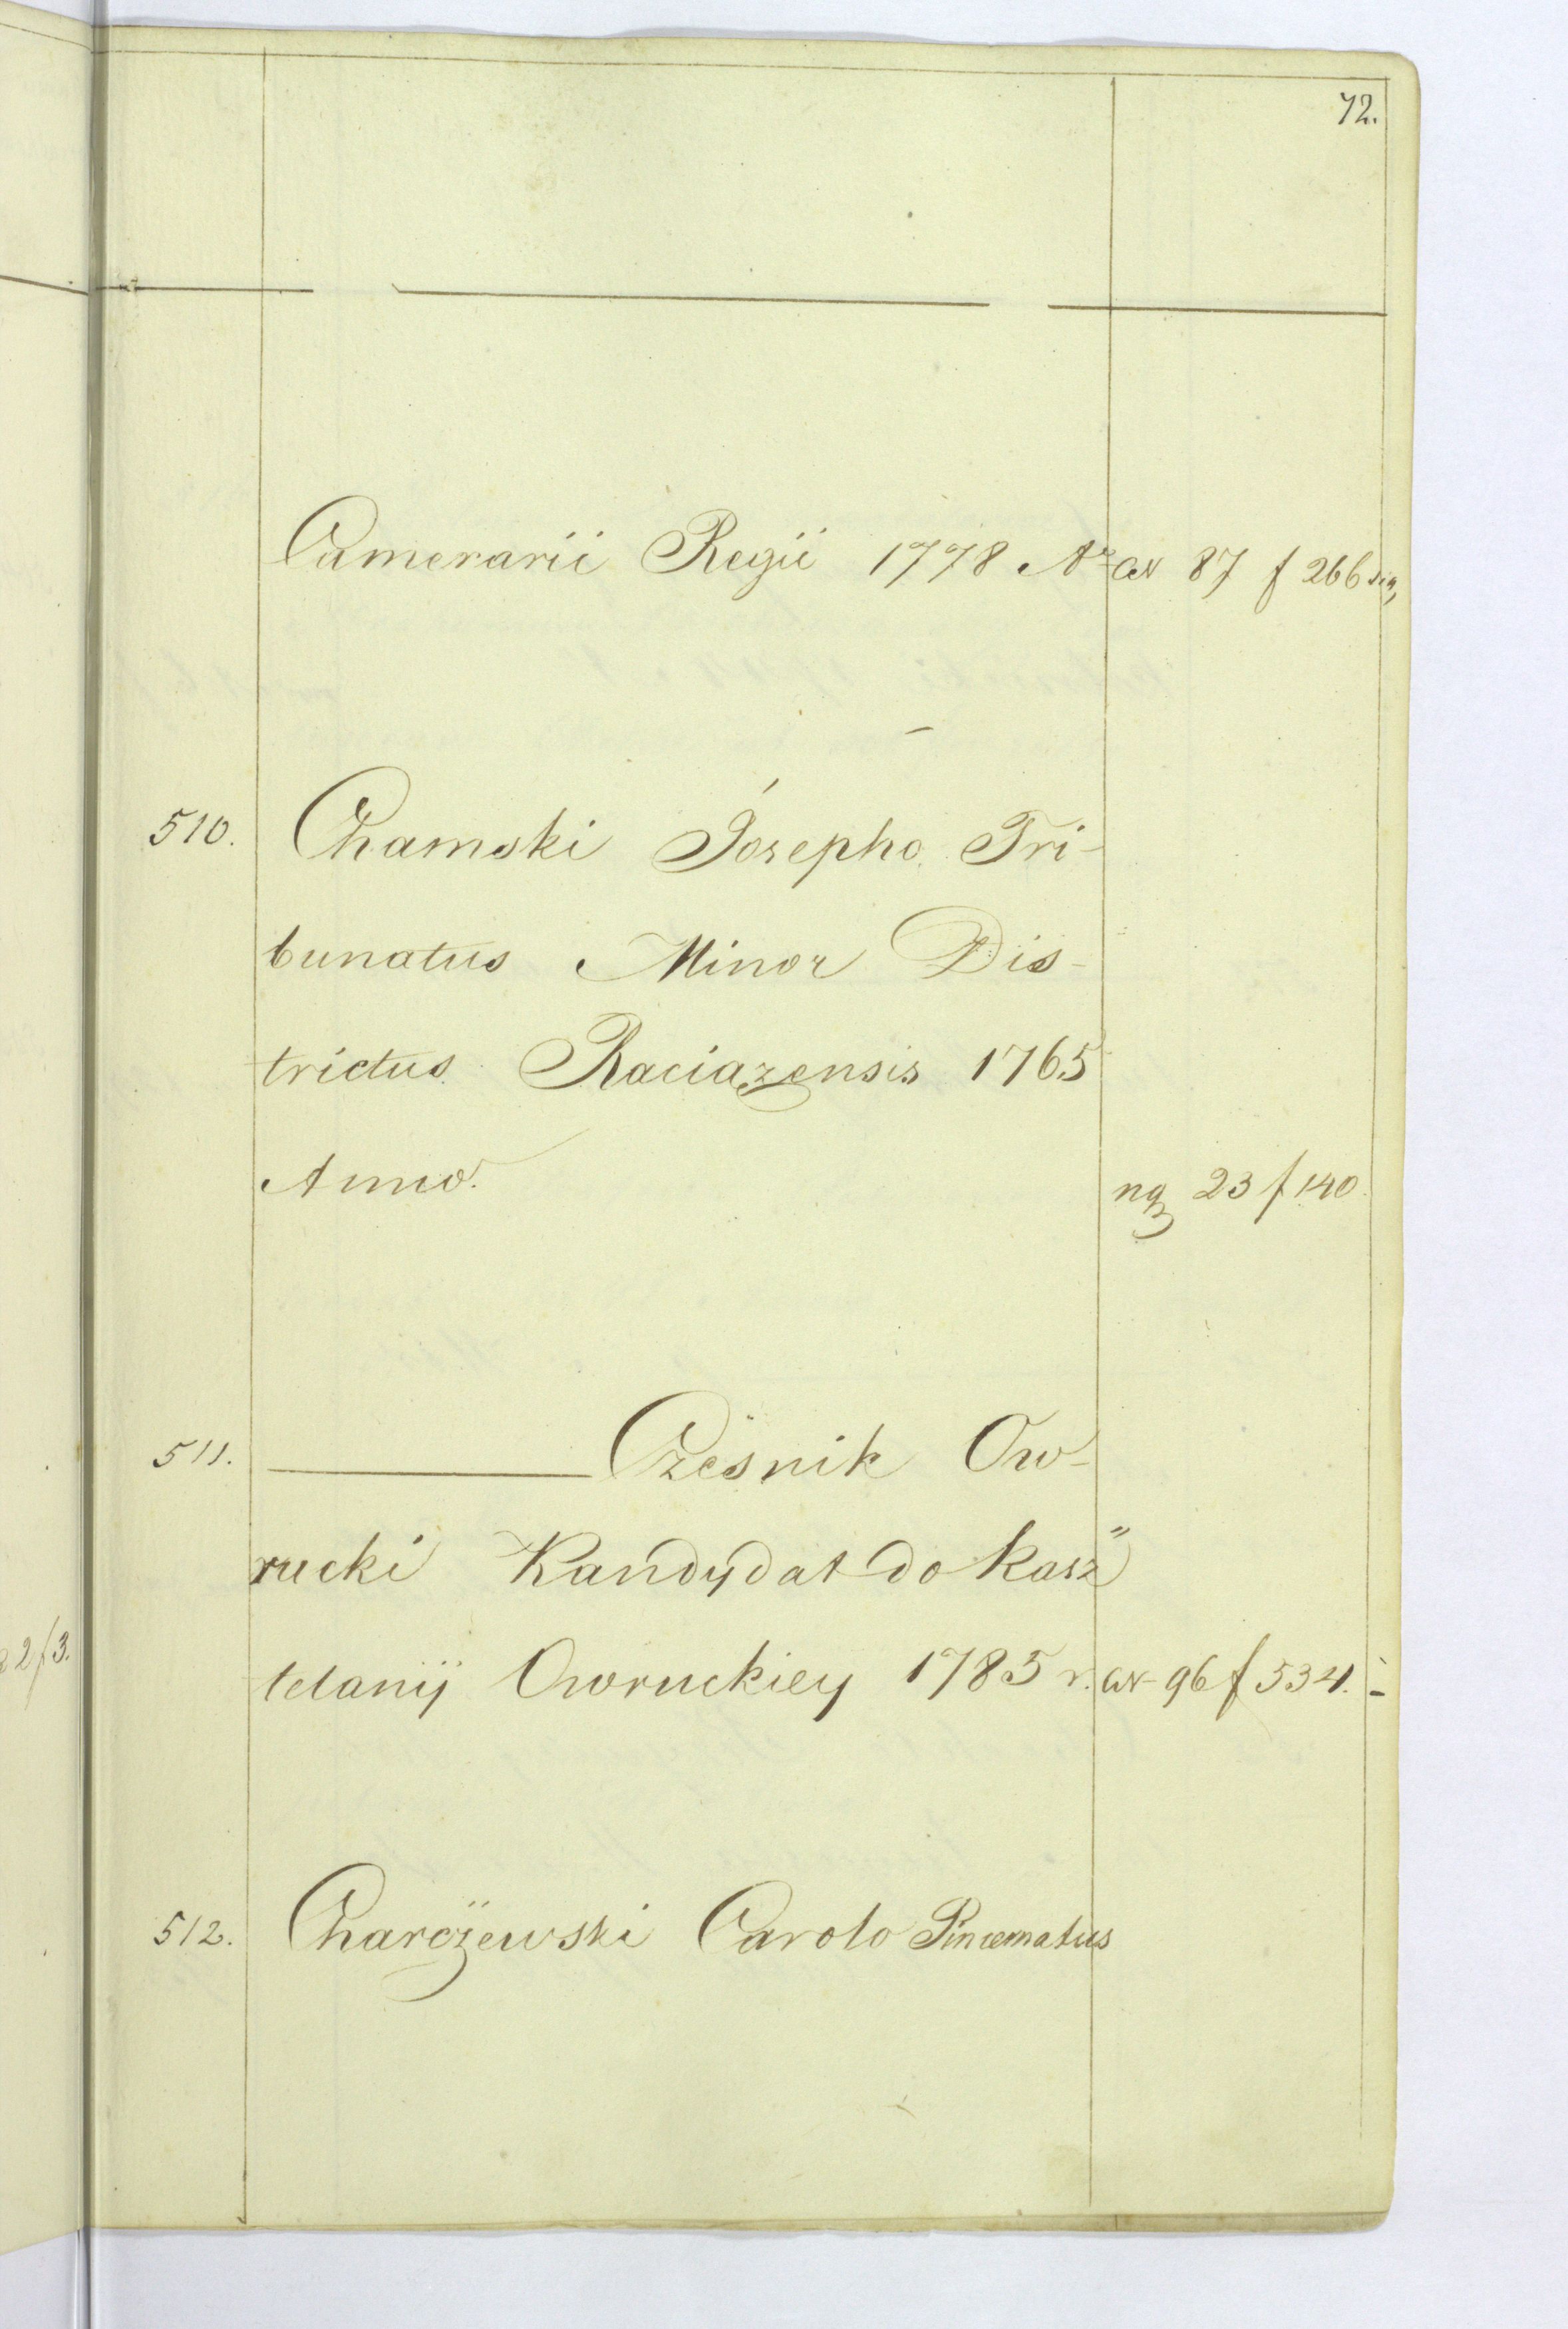 72.
Camerarii Regii 1778 Aº ax 87 f 266
510. Chamski Josepho Tri-
bunatus Minor Dis-
trictus Raciązensis 1765
Anno. ng 23 f 140
511. ——— Czesnik Ow-
rucki Kandydat do Kasz"
telanij Owruckiey 1785 r. ax 96 f 534.
512. Charczewski Carolo Pincernatus
2 f 3.